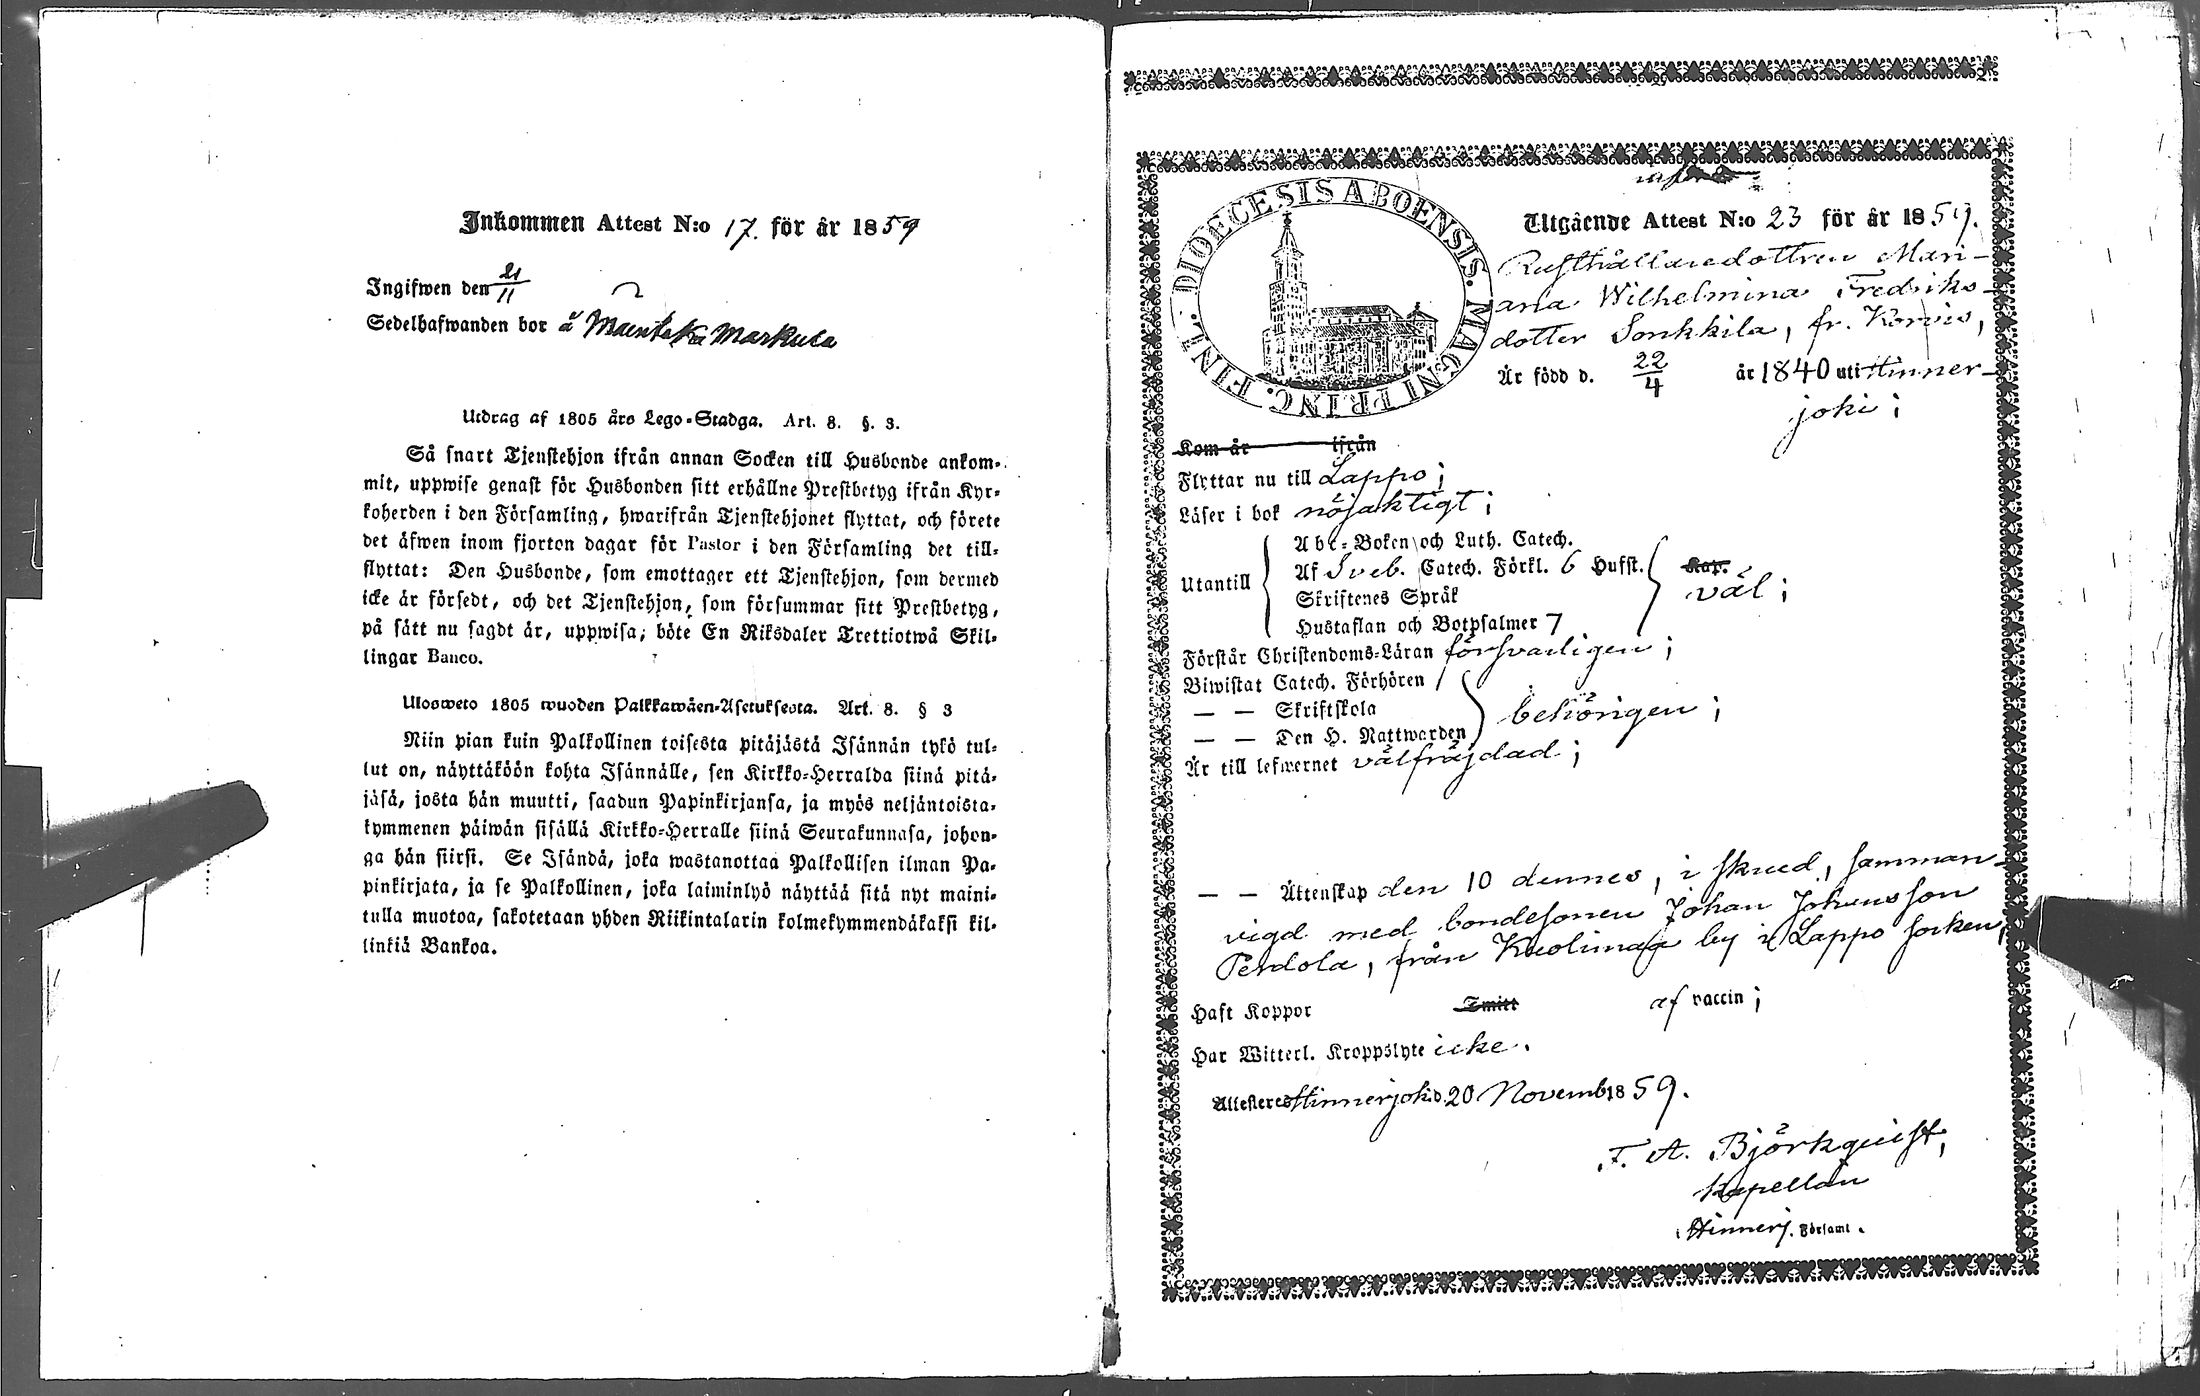 Inkommen Attest N:o 17. för år 1859
Ingifwen den 21/11
Sedelhafwanden bor å Mäentaka Markula
Utdrag af 1805 års Lego-Stadga. Art. 8. §. 3.
Så snart Tjenstehjon ifrån annan Socken till Husbonde ankom-
mit, uppwise genast för Husbonden sitt erhållne Prestbetyg ifrån Kyr-
koherden i den Församling, hwarifrån Tjenstehjonet flyttat, och förete
det äfwen inom fjorton dagar för Pastor i den Församling det till-
flyttat: Den Husbonde, som emottager ett Tjenstehjon, som dermed
icke är försedt, och det Tjenstehjon, som försummar sitt Prestbetyg,
på sätt nu sagdt är, uppwisa; böte En Riksdaler Trettiotwå Skil-
lingar Banco.
Ulosweto 1805 wuoden Palkkawäen-Asetuksesta. Art. 8. § 3
Niin pian kuin Palkollinen toisesta pitäjästä Isännän tykö tul-
lut on, näyttäköön kohta Isännälle, sen Kirkko-Herralda siinä pitä-
jäsä, josta hän muutti, saadun Papinkirjansa, ja myös neljäntoista-
kymmenen päiwän sisällä Kirkko-Herralle siinä Seurakunnasa, johon-
ga hän siirsi. Se Isändä, joka wastanottaa Palkollisen ilman Pa-
pinkirjata, ja se Palkollinen, joka laiminlyö näyttää sitä nyt maini-
tulla muotoa, sakotetaan yhden Riikintalarin kolmekymmendäkaksi kil-
linkiä Bankoa.
DIOECESIS ABOENSIS. MAGNI PRINC. FINL.
Utgående Attest N:o 23 för år 1859.
Rusthållaredottren Mari-
ana Wilhelmina Fredriks-
dotter Sonkkila, fr. Korvis,
Är född d. 22/4 år 1840 uti Hinner-
joki;
Kom år ifrån
Flyttar nu till Lappo;
Läser i bok nöjaktigt;
Abc-Boken och Luth. Catech.
Af Sveb. Catech. Förkl. 6 Hufst. Kap.
Utantill väl;
Skriftenes Språk
Hustaflan och Botpsalmer 7
Förstår Christendoms-Läran försvarligen;
Biwistat Catech. Förhören
— — Skriftskola behörigen;
— — Den H. Nattwarden
Är till lefwernet välfräjdad;
— — Ättenskap den 10 dennes, i skrud, samman-
vigd med bondesonen Johan Johansson
Perdola, från Kuolimaa by i Lappo socken,
Haft Koppor Smitt af vaccin;
Har Witterl. Kroppslyte icke.
Attesteres Hinnerjoki d. 20 Novemb. 1859.
F. A. Björkquist,
Kapellan
Hinnerj. Församl.